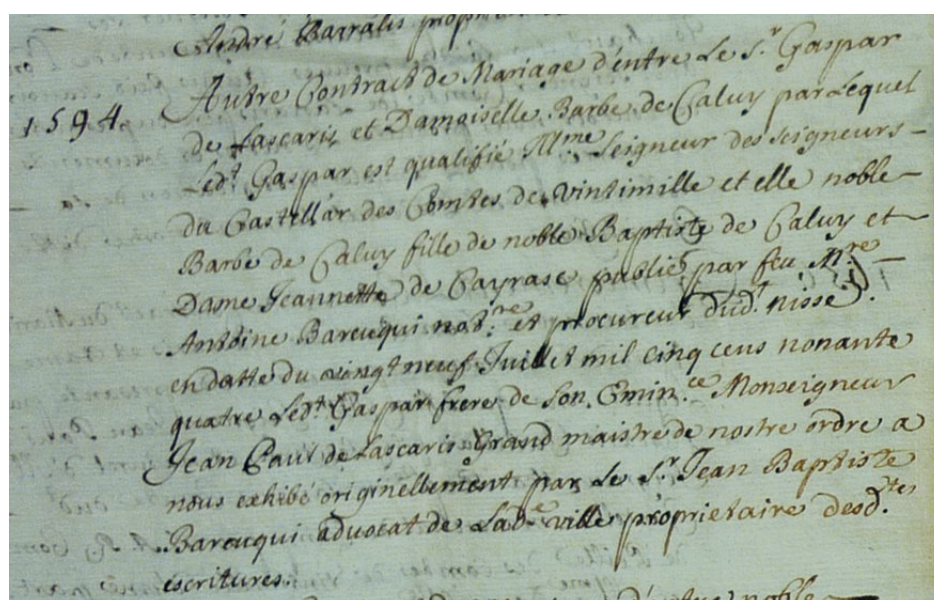 André Barralis
Autre Contract de Mariage d'entre Le S.r Gaspar
1594. de Lascaris et Damoiselle Barbe de Caluy par Lequel
Led.t Gaspar est qualifié Ill.me Seigneur des seigneurs
du Castellar des Comtes de Vintimille et elle noble
Barbe de Caluy fille de noble Baptiste de Caluy et
Dame Jeannette de Cayrasc publié par feu M.re
Antoine Barcuqui not.re et procureur dud.t nisse.
en datte du vingt neuf Juillet mil cinq cens nonante
quatre Led.t Gaspar frere de son Emin.ce Monseigneur
Jean Paul de Lascaris Grand maistre de nostre ordre a
nous exhibé originellement par Le S.r Jean Baptiste
Barcuqui advocat de Lad.e ville proprietaire desd.tes
escritures.
noble